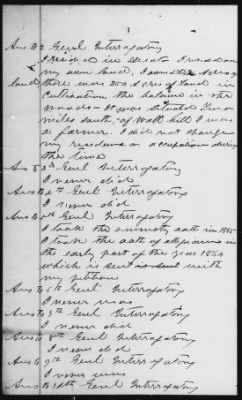 Ans to 2 Genl Interrogatory
I resided in I resided on
my own land, I owned acres of
land there were 200 acres of land in
cultivation the balance in the
woods it was situated three
miles south of Wall hill I was
a farmer. I did not change
my residence or occupation during
the time
Ans to 3d Genl Interrogatory
I never did
Ans to 4th Genl Interrogatory
I never did
Ans to 5th Genl Interrogatory
I took the amnesty oath in 1865
I took the oath of allegiance in
the early part of the year 1864
which is sent is sent with
my petition
Ans to 6th Genl Interrogatory
I never was
Ans to 7th Genl Interrogatory
I never did
Ans to 8th Genl Interrogatory
I never did
Ans to 9th Genl Interrogatory
I never was
Ans to 10th Genl Interrogatory